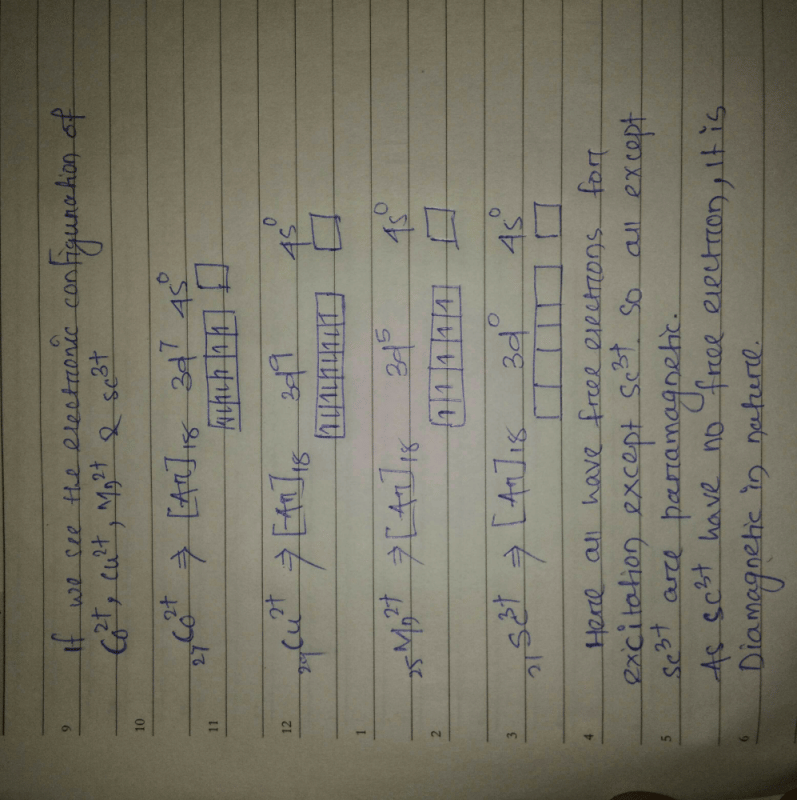 9 If we see the electronic configuration of
Co²⁺, Cu²⁺, Mn²⁺ & sc³⁺
10
₂₇Co²⁺ ⇒ [Ar]₁₈ 3d⁷ 4s⁰
11 ↑↓ ↑↓ ↑ ↑ ↑
12
₂₉Cu²⁺ ⇒ [Ar]₁₈ 3d⁹ 4s⁰
↑↓ ↑↓ ↑↓ ↑↓ ↑
1
₂₅Mn²⁺ ⇒ [Ar]₁₈ 3d⁵ 4s⁰
2 ↑ ↑ ↑ ↑ ↑
3 ₂₁Sc³⁺ ⇒ [Ar]₁₈ 3d⁰ 4s⁰
4 Here all have free electrons for
excitation except sc³⁺. so all except
5 sc³⁺ are paramagnetic.
As sc³⁺ have no free electron, it is
6 Diamagnetic in nature.